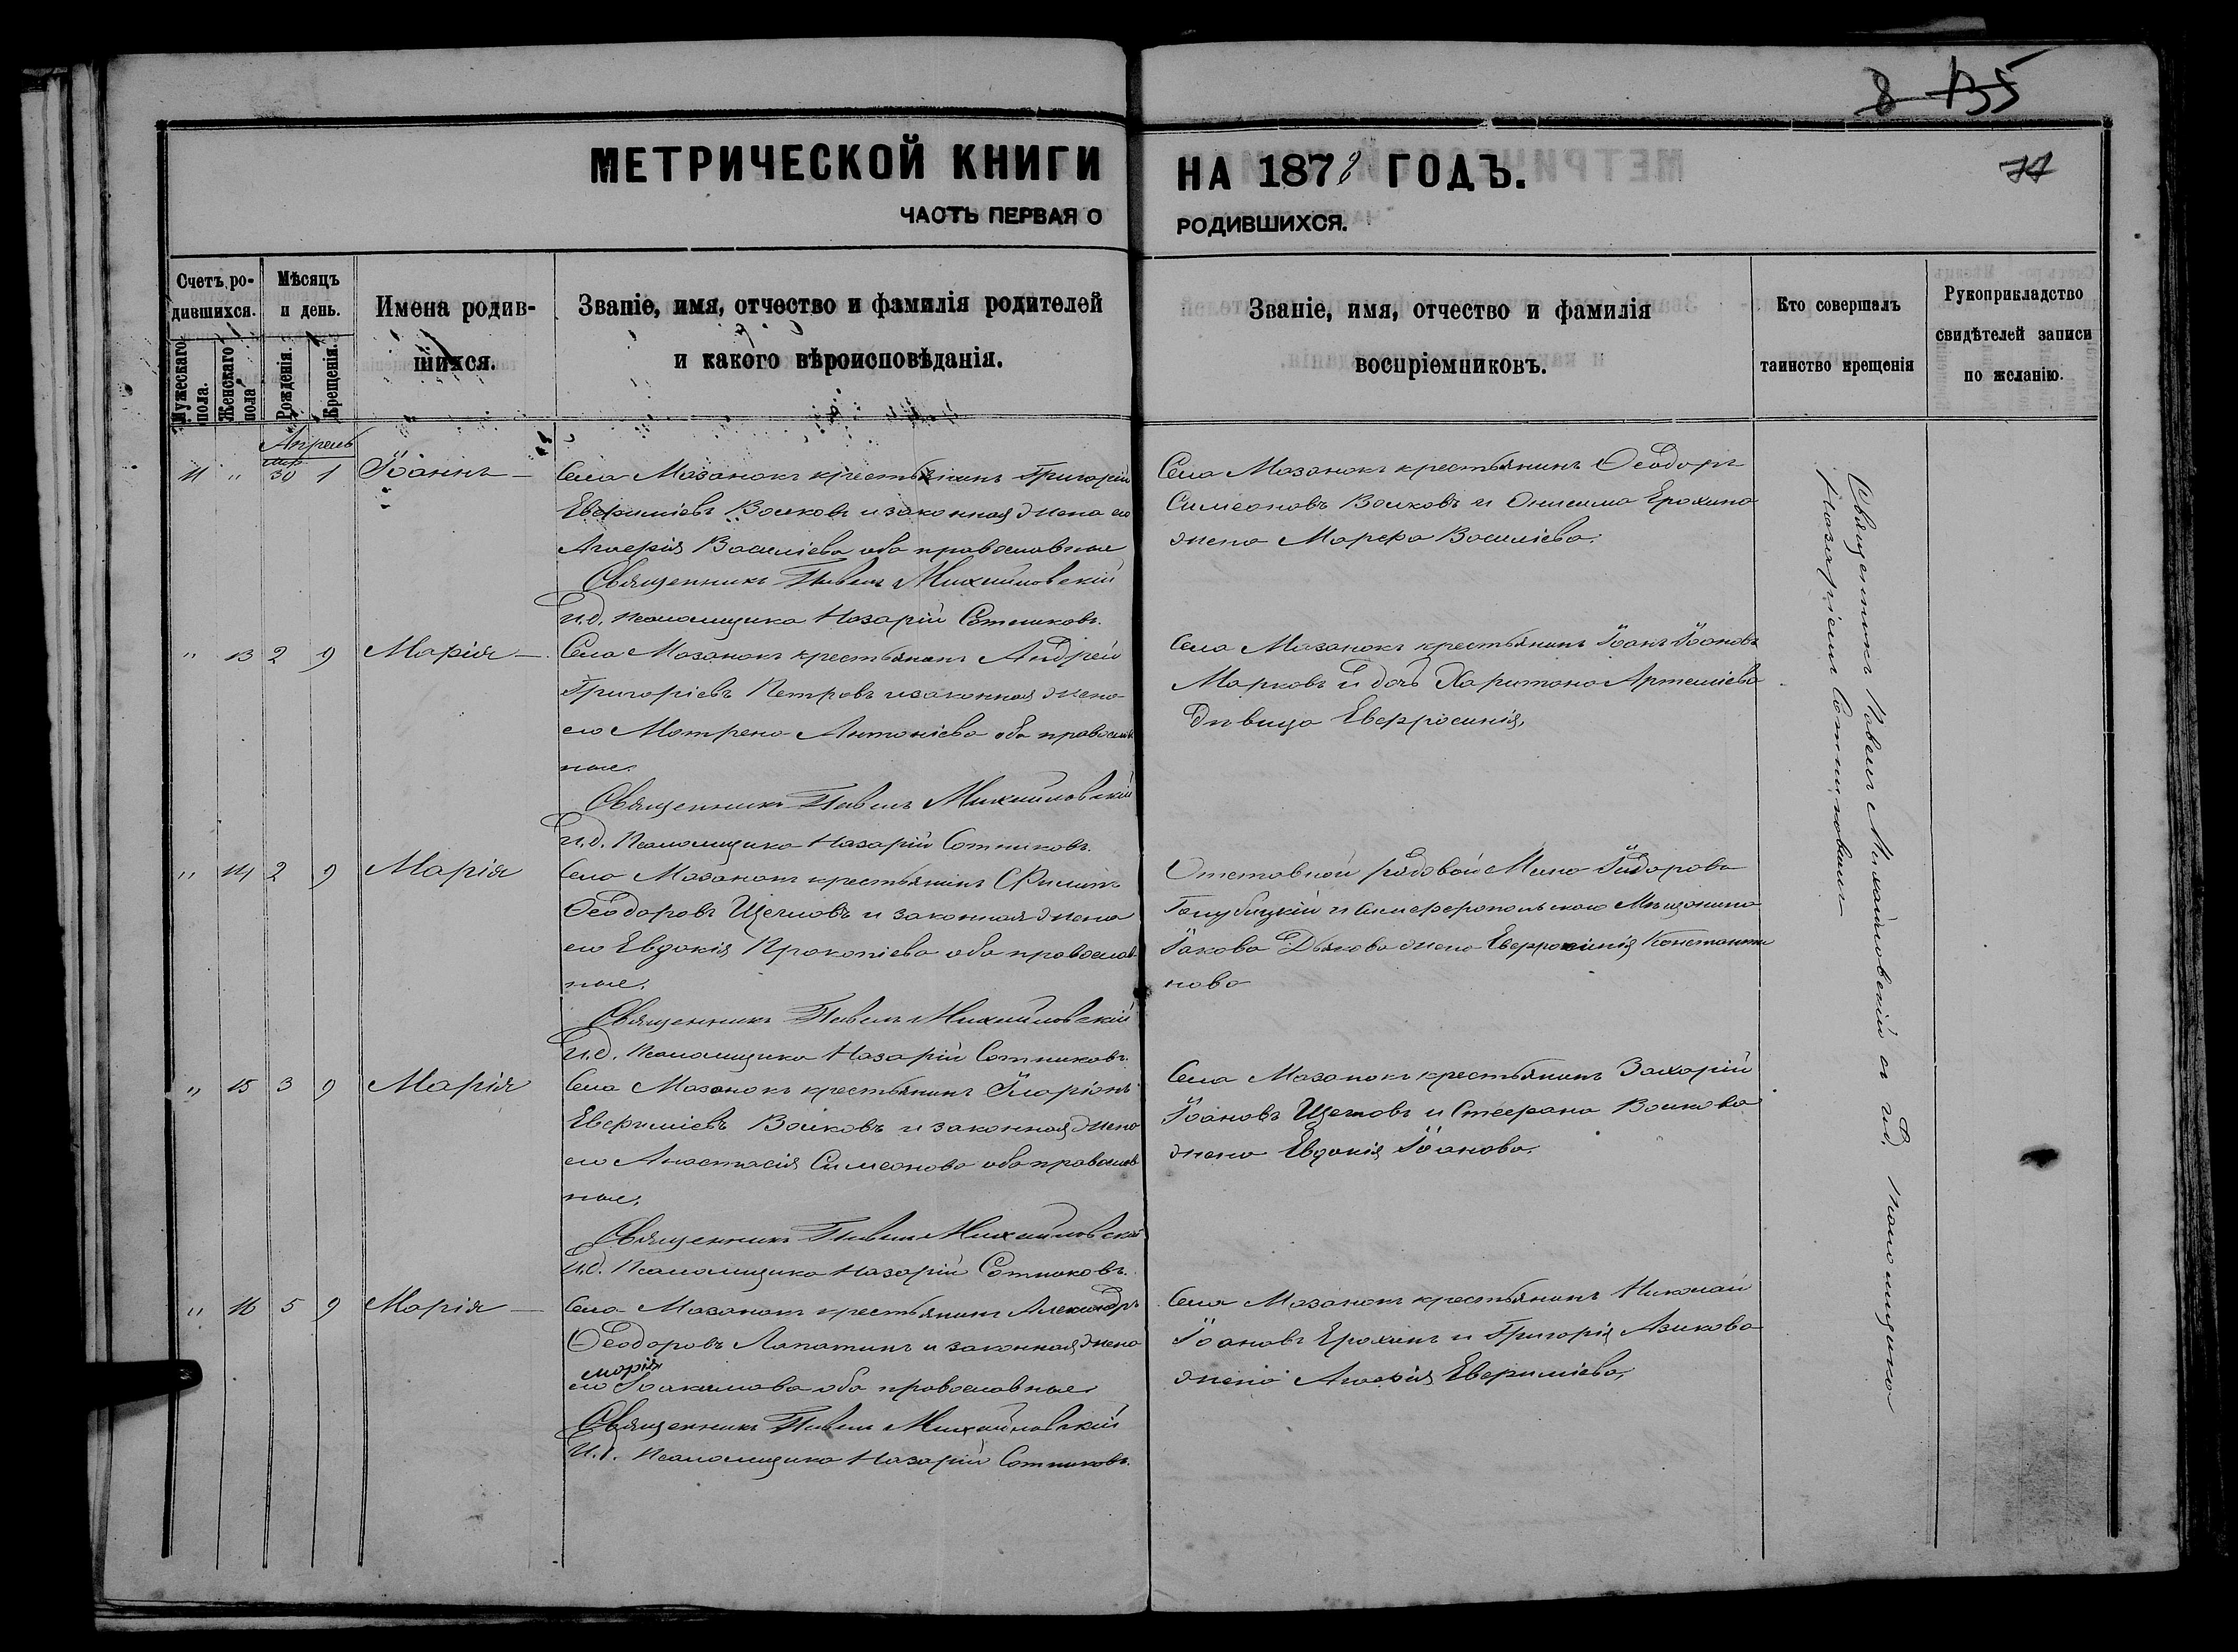 8 135
МЕТРИЧЕСКОЙ КНИГИ НА 1878 ГОДЪ.
77
ЧАСТЬ ПЕРВАЯ О РОДИВШИХСЯ.
Счетъ ро-
дившихся.
Мужескаго пола.
Женскаго пола
Мѣсяцъ
и день.
Рожденія.
Крещенія.
Имена родив-
шихся.
Званіе, имя, отчество и фамилія родителей
и какого вѣроисповѣданія.
Званіе, имя, отчество и фамилія
воспріемниковъ.
Кто совершалъ
таинство крещенія
Рукоприкладство
свидѣтелей записи
по желанію.
Апрель
11 " 30 1 Іоаннъ
Села Мазанокъ крестьянинъ Григорій
Евфиміевъ Волковъ и законная жена его
Агафія Василіева оба православные
Священникъ Павелъ Михайловскій
И.д. псаломщика Назарій Сотниковъ.
Села Мазанокъ крестьянинъ Ѳеодоръ
Симеоновъ Волковъ и Онисима Ерохина
жена Марфа Василіева.
" 13 2 9 Марія
Села Мазанокъ крестьянинъ Андрей
Григоріевъ Петровъ и законная жена
его Матрена Антоніева оба православ
ные.
Священникъ Павелъ Михайловскій
И.д. Псаломщика Назарій Сотниковъ.
Села Мазанокъ крестьянинъ Іоанъ Іоановъ
Марковъ и дочь Харитона Артеміева
дѣвица Евфросинія,
" 14 2 9 Марія
Села Мазанокъ крестьянинъ Филипъ
Ѳеодоровъ Щегловъ и законная жена
его Евдокія Прокопіева оба православ
ные.
Священникъ Павелъ Михайловскій
И.д. Псаломщика Назарій Сотниковъ.
Отставной рядовой Мина
Голубицкій и Симферопольскаго Мѣщанина
Іакова Дьякова жена Евфросинія Константи
нова
" 15 3 9 Марія
Села Мазанокъ крестьянинъ Иларіонъ
Евфиміевъ Волковъ и законная жена
его Анастасія Симеонова оба православ
ные.
Священникъ Павелъ Михайловскій
И.д. Псаломщика Назарій Сотниковъ.
Села Мазанокъ крестьянинъ Захарій
Іоановъ Щегловъ и Стефана Волкова
жена Евдокія Іоанова.
" 16 5 9 Марія
Села Мазанокъ крестьянинъ Александръ
Ѳеодоровъ Лапатинъ и законная жена
Марія
его Іоакимова оба православные
Священникъ Павелъ Михайловскій
И.д. Псаломщика Назарій Сотниковъ.
Села Мазанокъ крестьянинъ Николай
Іоановъ Ерохинъ и Григорія Азикова
жена Агафія Евфиміева,
Священникъ Павелъ Михайловскій съ и.д. псаломщика
Назаріемъ Сотниковымъ